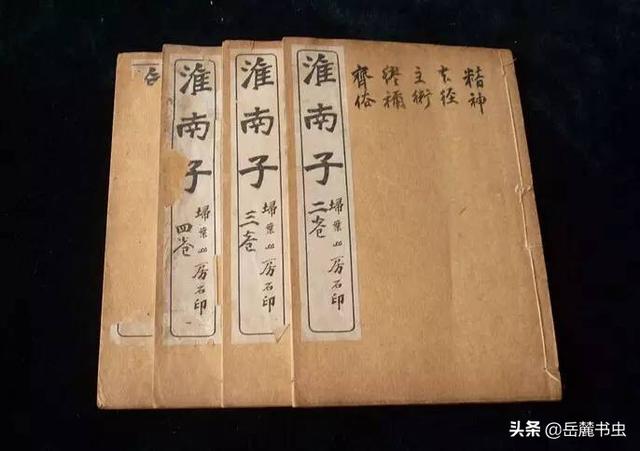 精神
主術
繆稱
齊俗
淮南子
埽葉山房石印
二卷
淮南子
埽葉山房石印
三卷
淮南子
埽葉山房石印
四卷
头条 @岳麓书虫